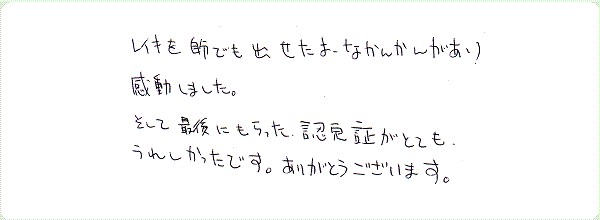 レイキを自分でも出せたような かんかくがあり
感動しました。
そして最後にもらった認定証がとても
うれしかったです。ありがとうございます。